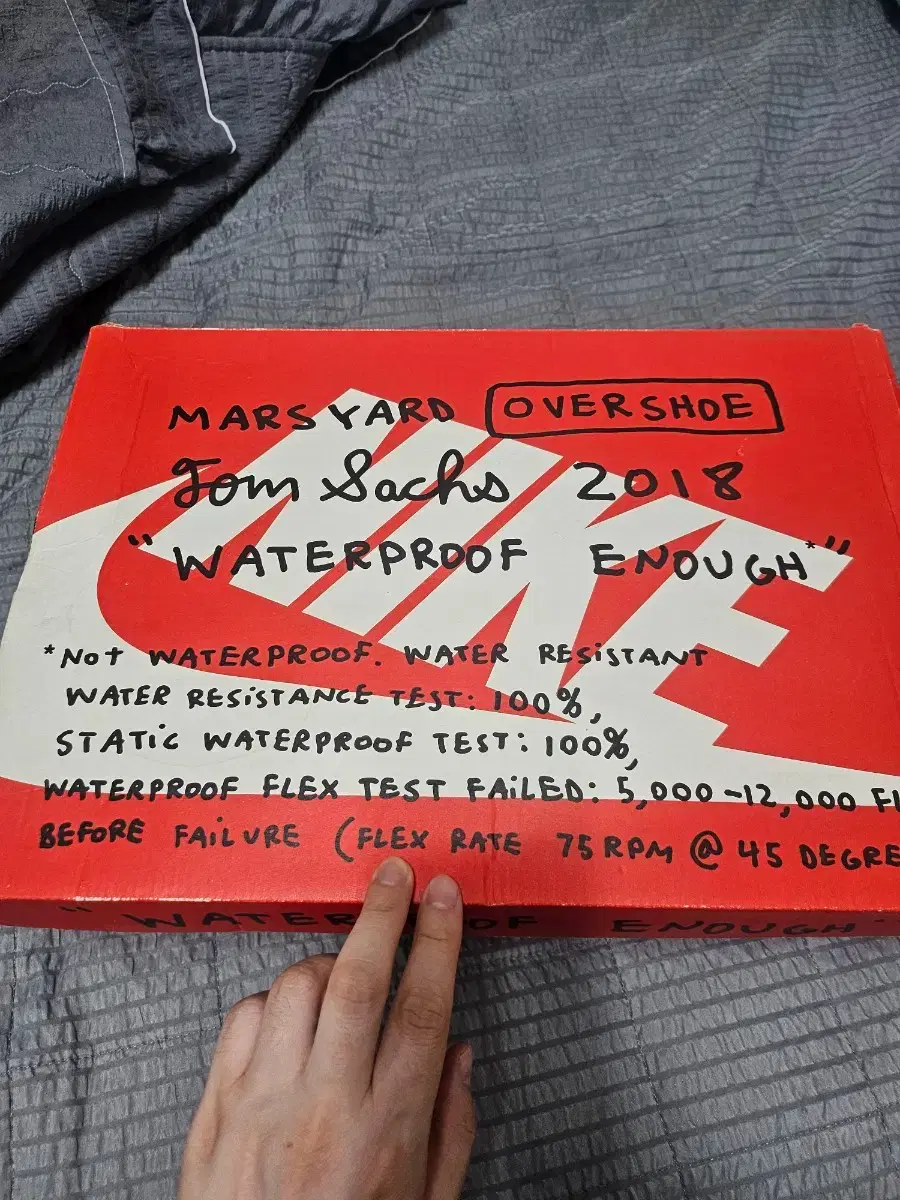 MARS YARD OVERSHOE
Tom Sachs 2018
"WATERPROOF ENOUGH*"
NIKE
*NOT WATERPROOF. WATER RESiSTANT
WATER RESiSTANCE TEST: 100%,
STATiC WATERPROOF TEST: 100%,
WATERPROOF FLEX TEST FAiLED: 5,000-12,000 FL
BEFORE FAiLURE (FLEX RATE 75 RPM @ 45 DEGRE
"WATER OF ENOUGH"